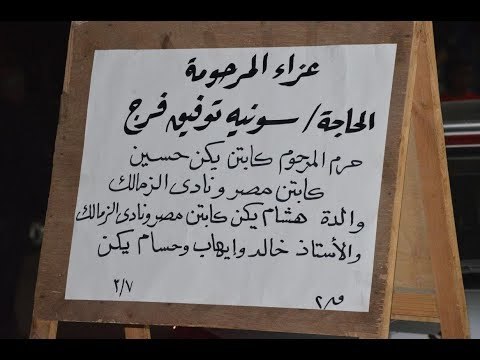 عزاء المرحومة
الحاجة / سونيه توفيق فرج
حرم المرحوم كابتن يكن حسين
كابتن مصر ونادى الزمالك
والدة هشام يكن كابتن مصر ونادى الزمالك
والأستاذ خالد وإيهاب وحسام يكن
٢/٧